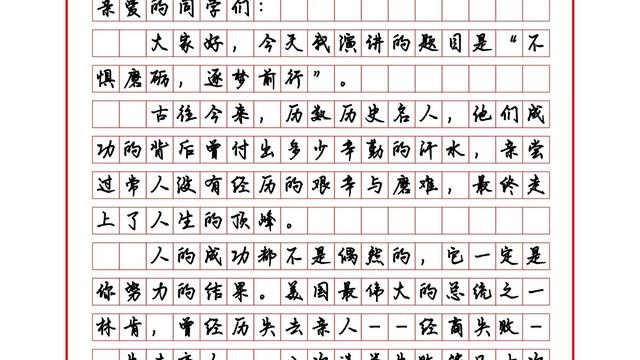 亲爱的同学们：
大家好，今天我演讲的题目是“不
惧磨砺，逐梦前行”。
古往今来，历数历史名人，他们成
功的背后曾付出多少辛勤的汗水，亲尝
过常人没有经历的艰辛与磨难，最终走
上了人生的顶峰。
人的成功都不是偶然的，它一定是
你努力的结果。美国最伟大的总统之一
林肯，曾经历失去亲人--经商失败-